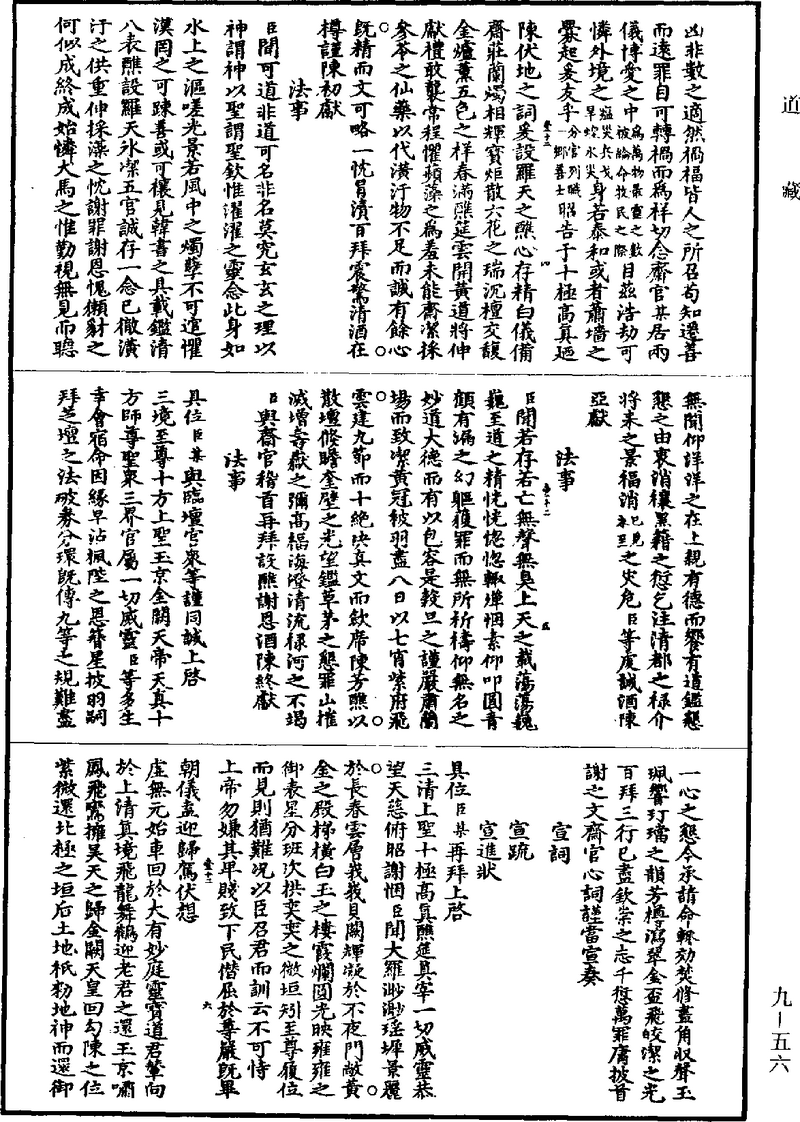 道藏
凶非數之適然禍福皆人之所召苟知遷善
而遠罪自可轉禍而為祥切念齋官某居兩
儀博愛之中為萬物最靈之數被論命牧民之際目茲浩劫可
憐外境之旱蝗水災身若泰和或者蕭墻之
釁起爰友乎分官列職一鄉善士昭告于十極高真廼
陳伏地之詞爰設羅天之醮心存精白儀備
齋莊蘭燭相輝寶炬散六花之瑞沉檀交馥
金爐薰五色之祥春滿醮筵雲開黃道將伸
獻禮敢擊常程懼蘋藻之為羞未能齋潔採
參苓之仙藥以代潢汙物不足而誠有餘心
既精而文可略一忱冐瀆百拜震驚清酒在
樽謹陳初獻
法事
臣聞可道非道可名非名莫究玄玄之理以
神謂神以聖謂聖欽惟濯濯之靈念此身如
水上之漚嗟光景若風中之燭孽不可逭懼
漢罔之可踈善或可禳見韓書之具載鑑清
八表醮設羅天氷潔五官誠存一念已徹潢
汙之供重伸採藻之忱謝罪謝恩愧獺豺之
何似成終成始憐犬馬之惟勤視無見而聽
無聞仰洋洋之在上親有德而饗有道鑑懇
懇之由衷消穰黑籍之愆乞注清都之祿介
將来之景福消已見未至之災危臣等虔誠酒陳
亞獻
法事
臣聞若存若亡無聲無臭上天之載蕩蕩巍
巍至道之精恍恍惚惚輙殫悃素仰叩圓青
顧有漏之幻軀獲罪而無所祈禱仰無名之
妙道大德而有以包容是穀旦之謹嚴肅蘭
場而致潔黃冠被羽盡八日以七宵紫府飛
雲建九節而十絕決真文而飲席陳芳醮以
散壇修瞻奎壁之光望鑑草茅之懇罪山摧
滅增壽嶽之彌高福海澄清流祿河之不竭
臣與齋官稽首再拜設醮謝恩酒陳終獻
法事
具位臣某與臨壇官衆等謹同誠上啓
三境至尊十方上聖玉京金闕天帝天真十
方師尊聖衆三界官屬一切威靈臣等多生
幸會宿命因緣早沾楓陛之恩簪星披羽嗣
拜芝壇之法破券分環旣傳九等之規難盡
一心之懇今承請命輙効焚修畫角収聲玉
珮響玎璫之韻芳樽瀉翠金盃飛皎潔之光
百拜三行已盡欽崇之志千愆萬罪庸披首
謝之文齋官心詞謹當宣奏
宣詞
宣䟽
宣進狀
具位臣某再拜上啓
三清上聖十極高真醮筵真宰一切威靈恭
望天慈俯昭謝悃臣聞大羅渺渺瑶墀景麗
於長春雲層峩峩貝闕輝凝於不夜門敞黃
金之殿梯橫白玉之棲霞爛圓光映雍雍之
御表星分班次拱奕奕之微垣矧至尊履位
而見則猶難况以臣召君而訓云不可恃
上帝勿嫌其卑賤致下民僭屈於尊嚴旣畢
朝儀盍迎歸駕伏想
虛無元始車回於大有妙庭靈寶道君輦向
於上清真境飛龍舞鶴迎老君之還玉京嘯
鳳飛鸞擁昊天之歸金闕天皇回勾陳之位
紫微還北極之垣后土地祇勑地神而還御
九—五六